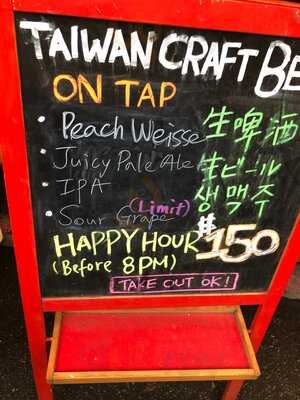 TAIWAN CRAFT BE
ON TAP
• Peach Weisse
• Juicy Pale Ale
• IPA
• Sour Grape (Limit)
生啤酒
生ビール
생맥주
HAPPY HOUR $150
(Before 8PM)
TAKE OUT OK!